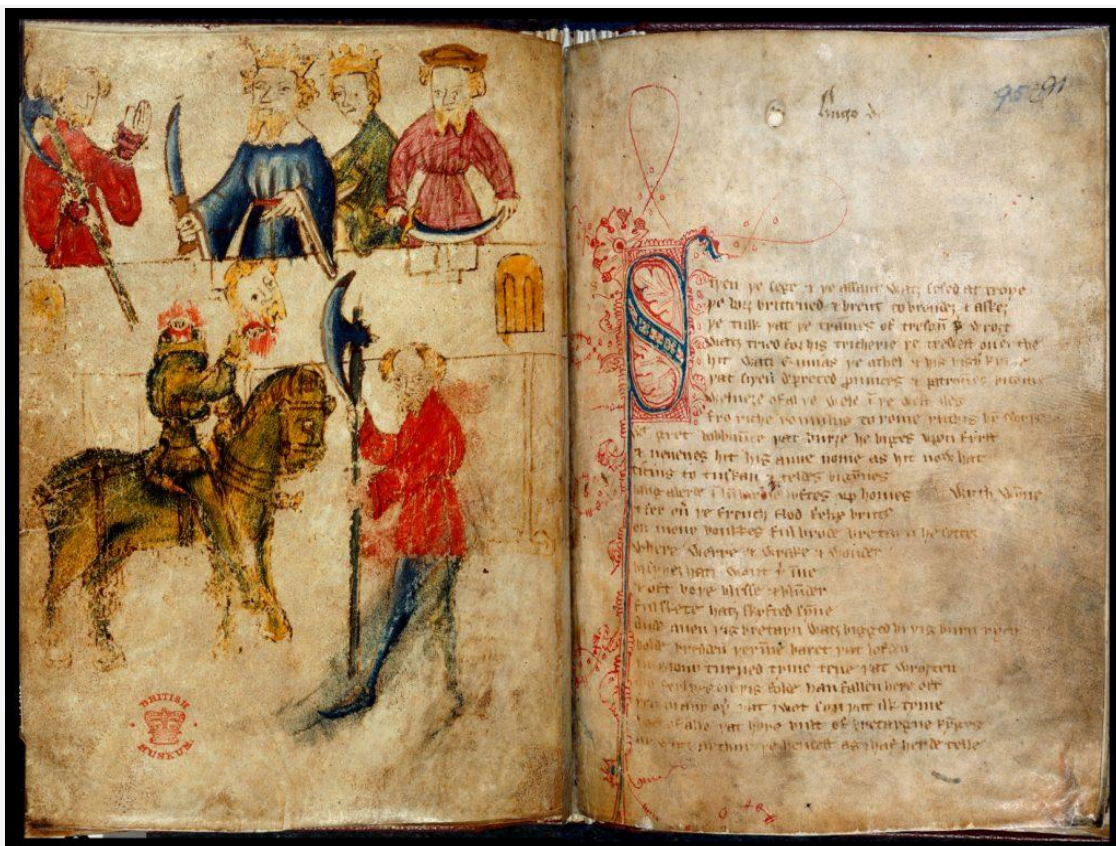 Hugo de
95 91
Siþen þe sege & þe assaut watz sesed at troye
þe borȝ brittened & brent to brondeȝ & askez
þe tulk þat þe trammes of tresoun þ wroȝt
watz tried for his tricherie þe trewest on erthe
hit watz ennias þe athel & his highe kynde
þat siþen depreced prouinces & patrounes bicome
welneȝe of al þe wele ī þe west iles
fro riche romulus to rome ricchis hym swyþe
gret bobbaunce þat burȝe he biges vpon fyrst
& neuenes hit his aune nome as hit now hat
ticius to tuskan & teldes bigynnes
lyftes vp homes wyth wynne
& fer ou þe french flod felix brutus
on mony bonkkes ful brode bretayn he settez
where werre & wrake & wonder
hatz wont
& oft boþe blysse & blunder
ful skete hatz skyfted synne
Ande quen þis bretayn watz bigged bi þis burn rych
bolde bredden þerinne baret þat lofden
turned tyme tene þat wroȝten
on þis folde han fallen here oft
þat I wot syn þat ilk tyme
of alle þat here bult of bretaygne kynges
þe hendest as I haf herde telle
BRITISH MUSEUM